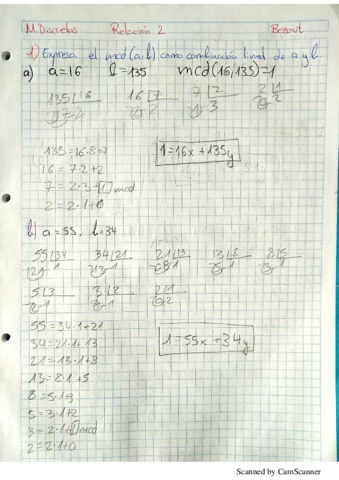 M.Discretas Relación 2 Bezout
1) Expresa el mcd(a,b) como combinación lineal de a y b
a) a=16 b=135 mcd(16,135)=1
135|16 16|7 7|2 2|1
135=16·8+7
16=7·2+2 1=16x+135y
7=2·3+1 mcd
2=2·1+0
b) a=55, b=34
55|34 34|21 21|13 13|8 8|5
21 1 13 1
5|3 3|2 2|1
55=34·1+21
34=21·1+13 1=55x+34y
21=13·1+8
13=8·1+5
8=5·1+3
5=3·1+2
3=2·1+1 mcd
2=2·1+0
Scanned by CamScanner